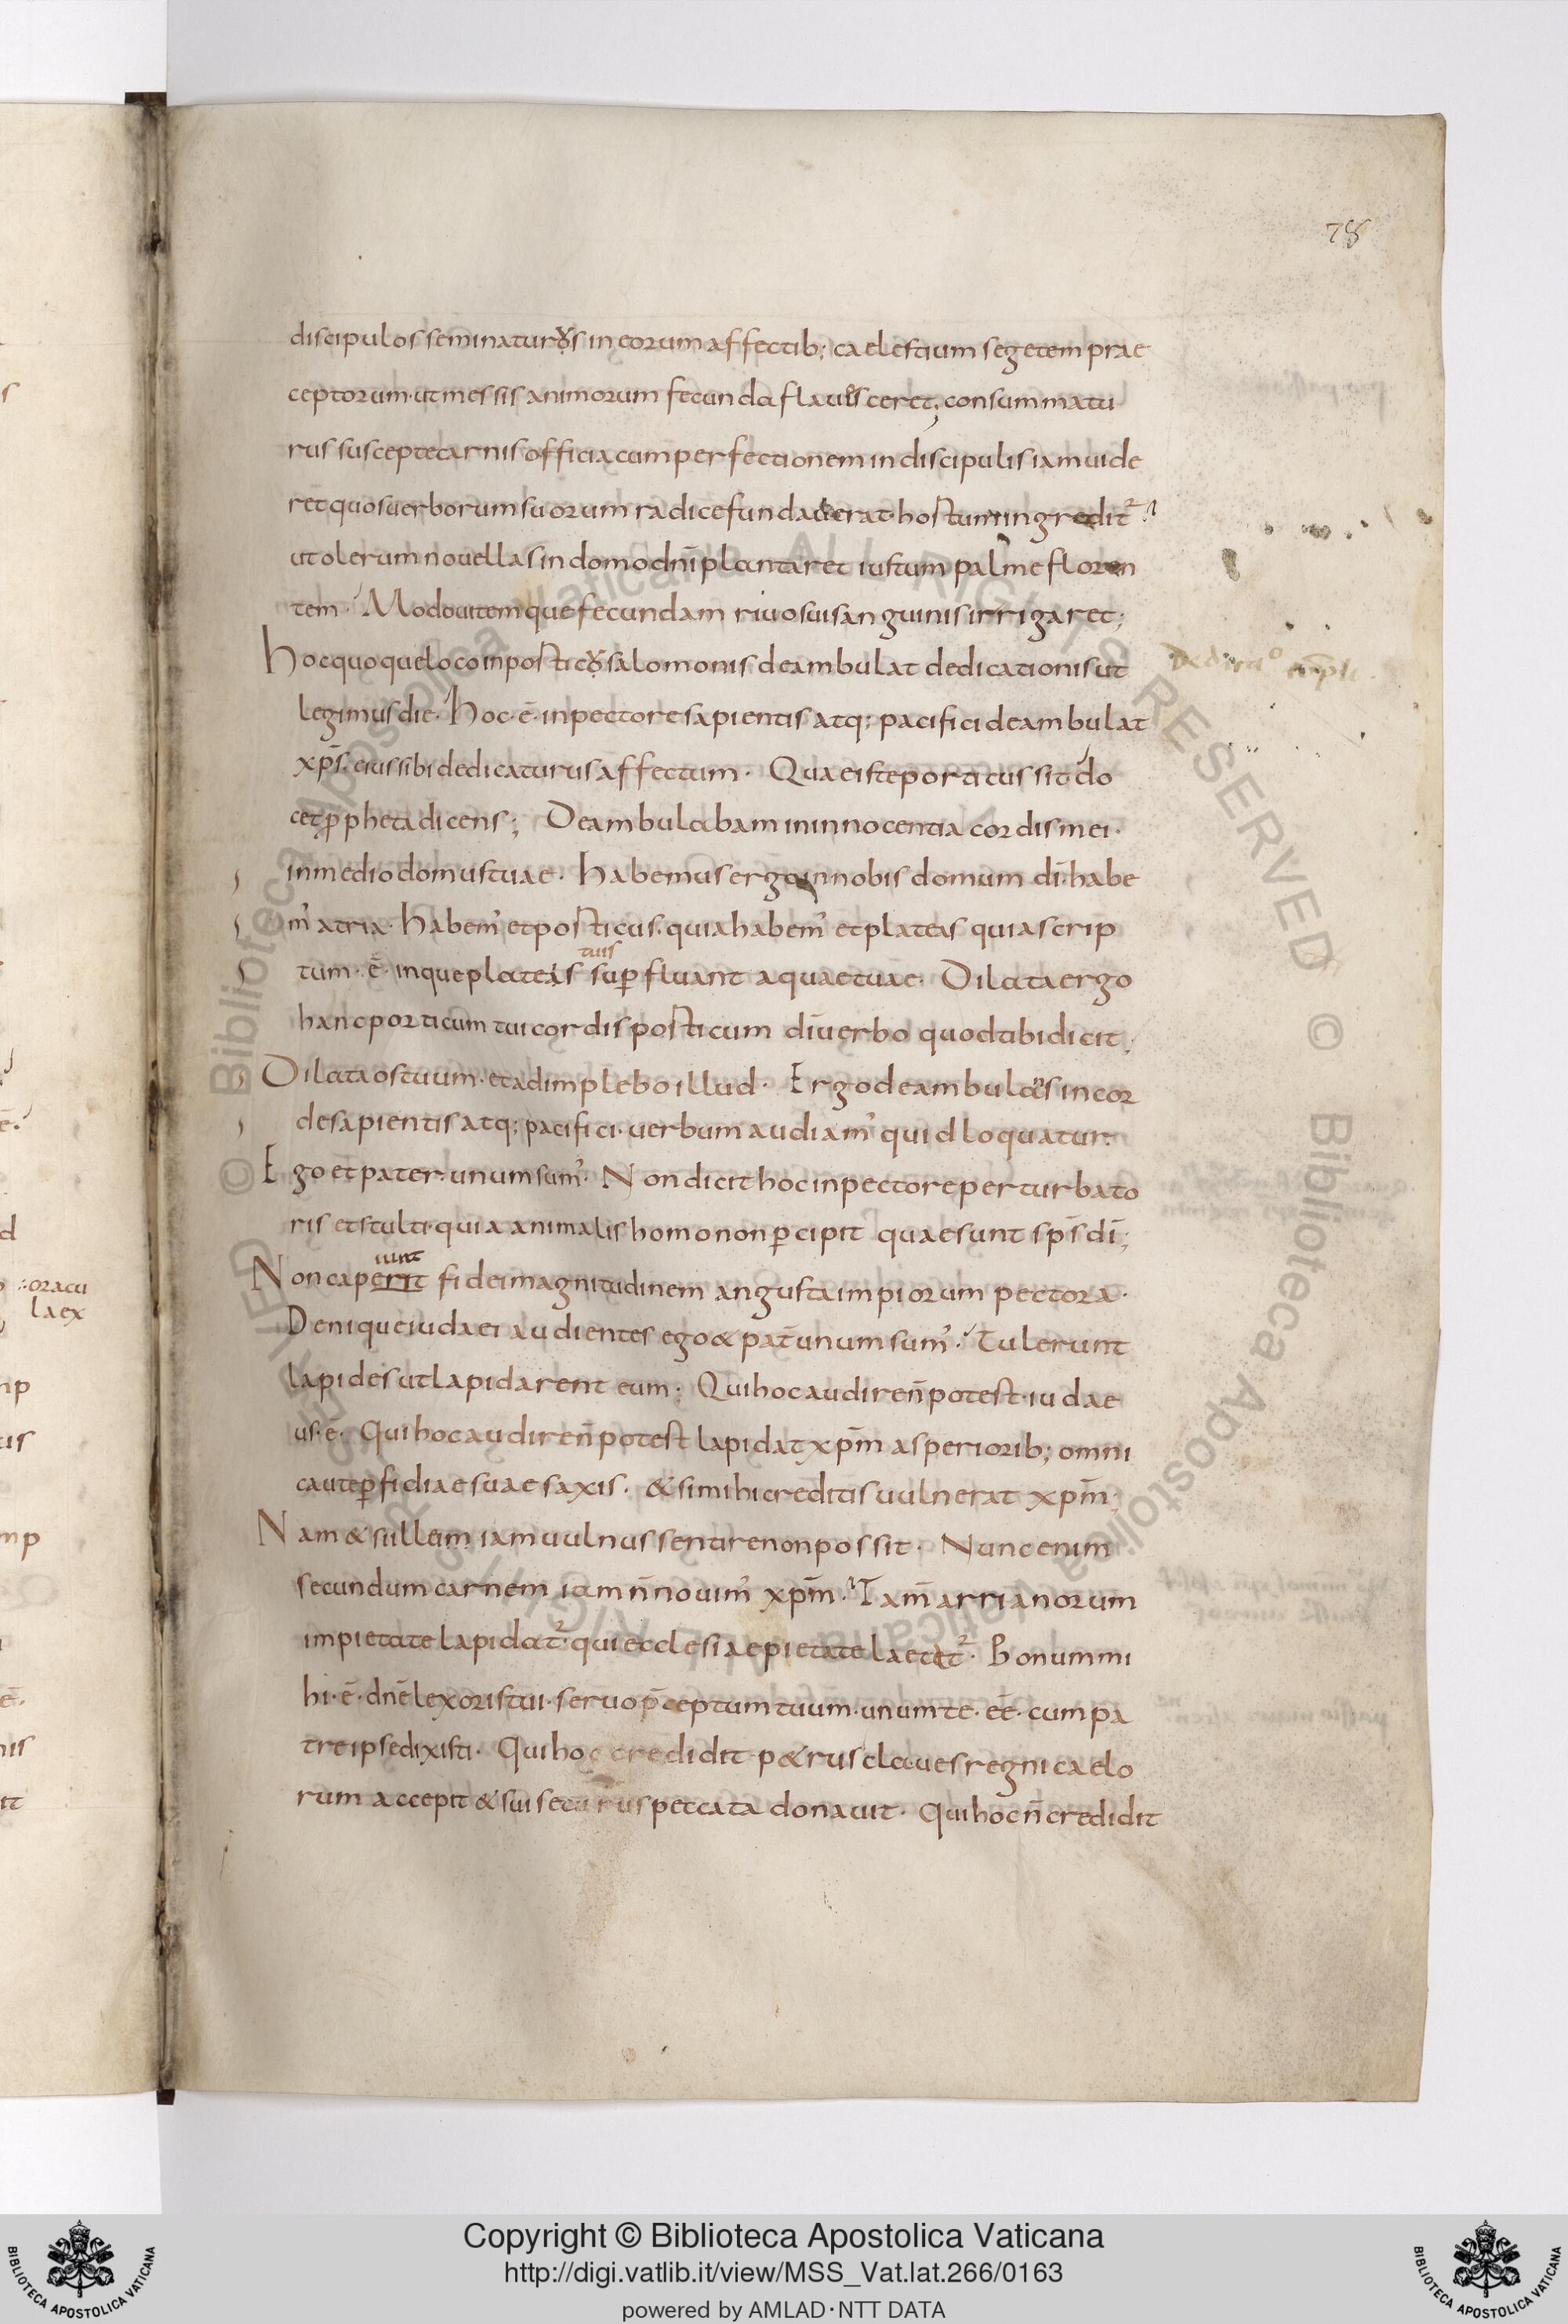 78
discipulos seminaturos in eorum affectib; caelestium segetem prae
ceptorum· ut messis animorum fecunda flauesceret; consummatu
rus suscepte carnis officia cum perfectionem in discipulis iam uide
ret quos uerborum suorum radice fundauerat· hostum ingredit᷑
ut olerum nouellas in domo dnī plantaret iustum palme floren
tem· Modo uitemque fecundam riuo sui sanguinis irrigaret;
hoc quoque loco in posticos salomonis deambulat dedicationis ut
legimus die· hoc·ē· in pectore sapientis atq; pacifici deambulat
xp̄s· eius sibi dedicaturus affectum· Quae iste porticus sit do
cet ꝓpheta dicens; Deambulabam in innocentia cordis mei·
in medio domus tuae· habemus ergo in nobis domum dī· habe
m᾽ atria· habem᾽ et posticus· quia habem᾽ et plateas quia scrip
tuis
tum·ē· inque plateis suꝑfluant aquae tuae· Dilata ergo
hanc porticum tui cordis posticum dī uerbo quod tibi dicit;
Dilata os tuum· et adimplebo illud· Ergo deambulans in cor
de sapientis atq; pacifici· uerbum audiam᾽ quid loquatur·
Ego et pater· unum sum᾽· Non dicit hoc in pectore perturbato
ris et stulti· quia animalis homo non ꝑcipit quae sunt sp̄s dī;
iunt
Non caperit fidei magnitudinem angusta impiorum pectora·
Denique iudaei audientes ego & pat̄ unum sum᾽· Tulerunt
lapides ut lapidarent eum; Qui hoc audire n̄ potest· iudae
us·ē· Qui hoc audire n̄ potest lapidat xp̄m asperiorib; omni
caute ꝑfidiae suae saxis· & si mihi creditis uulnerat xp̄m;
Nam & si illum iam uulnus sentire non possit· Nunc enim
secundum carnem iam n̄ nouim᾽ xp̄m· Tam̄ arrianorum
impietate lapidat᷑· qui ecclesiae pietate laetat᷑· Bonum mi
hi·ē· dnē lex oris tui· seruo p̄ceptum tuum· unum te·eē· cum pa
tre ipse dixisti· Qui hoc credidit p&rus claues regni caelo
rum accepit & sui securus peccata donauit· Qui hoc n̄ credidit
oracu
la ex
Copyright © Biblioteca Apostolica Vaticana
http://digi.vatlib.it/view/MSS_Vat.lat.266/0163
powered by AMLAD·NTT DATA